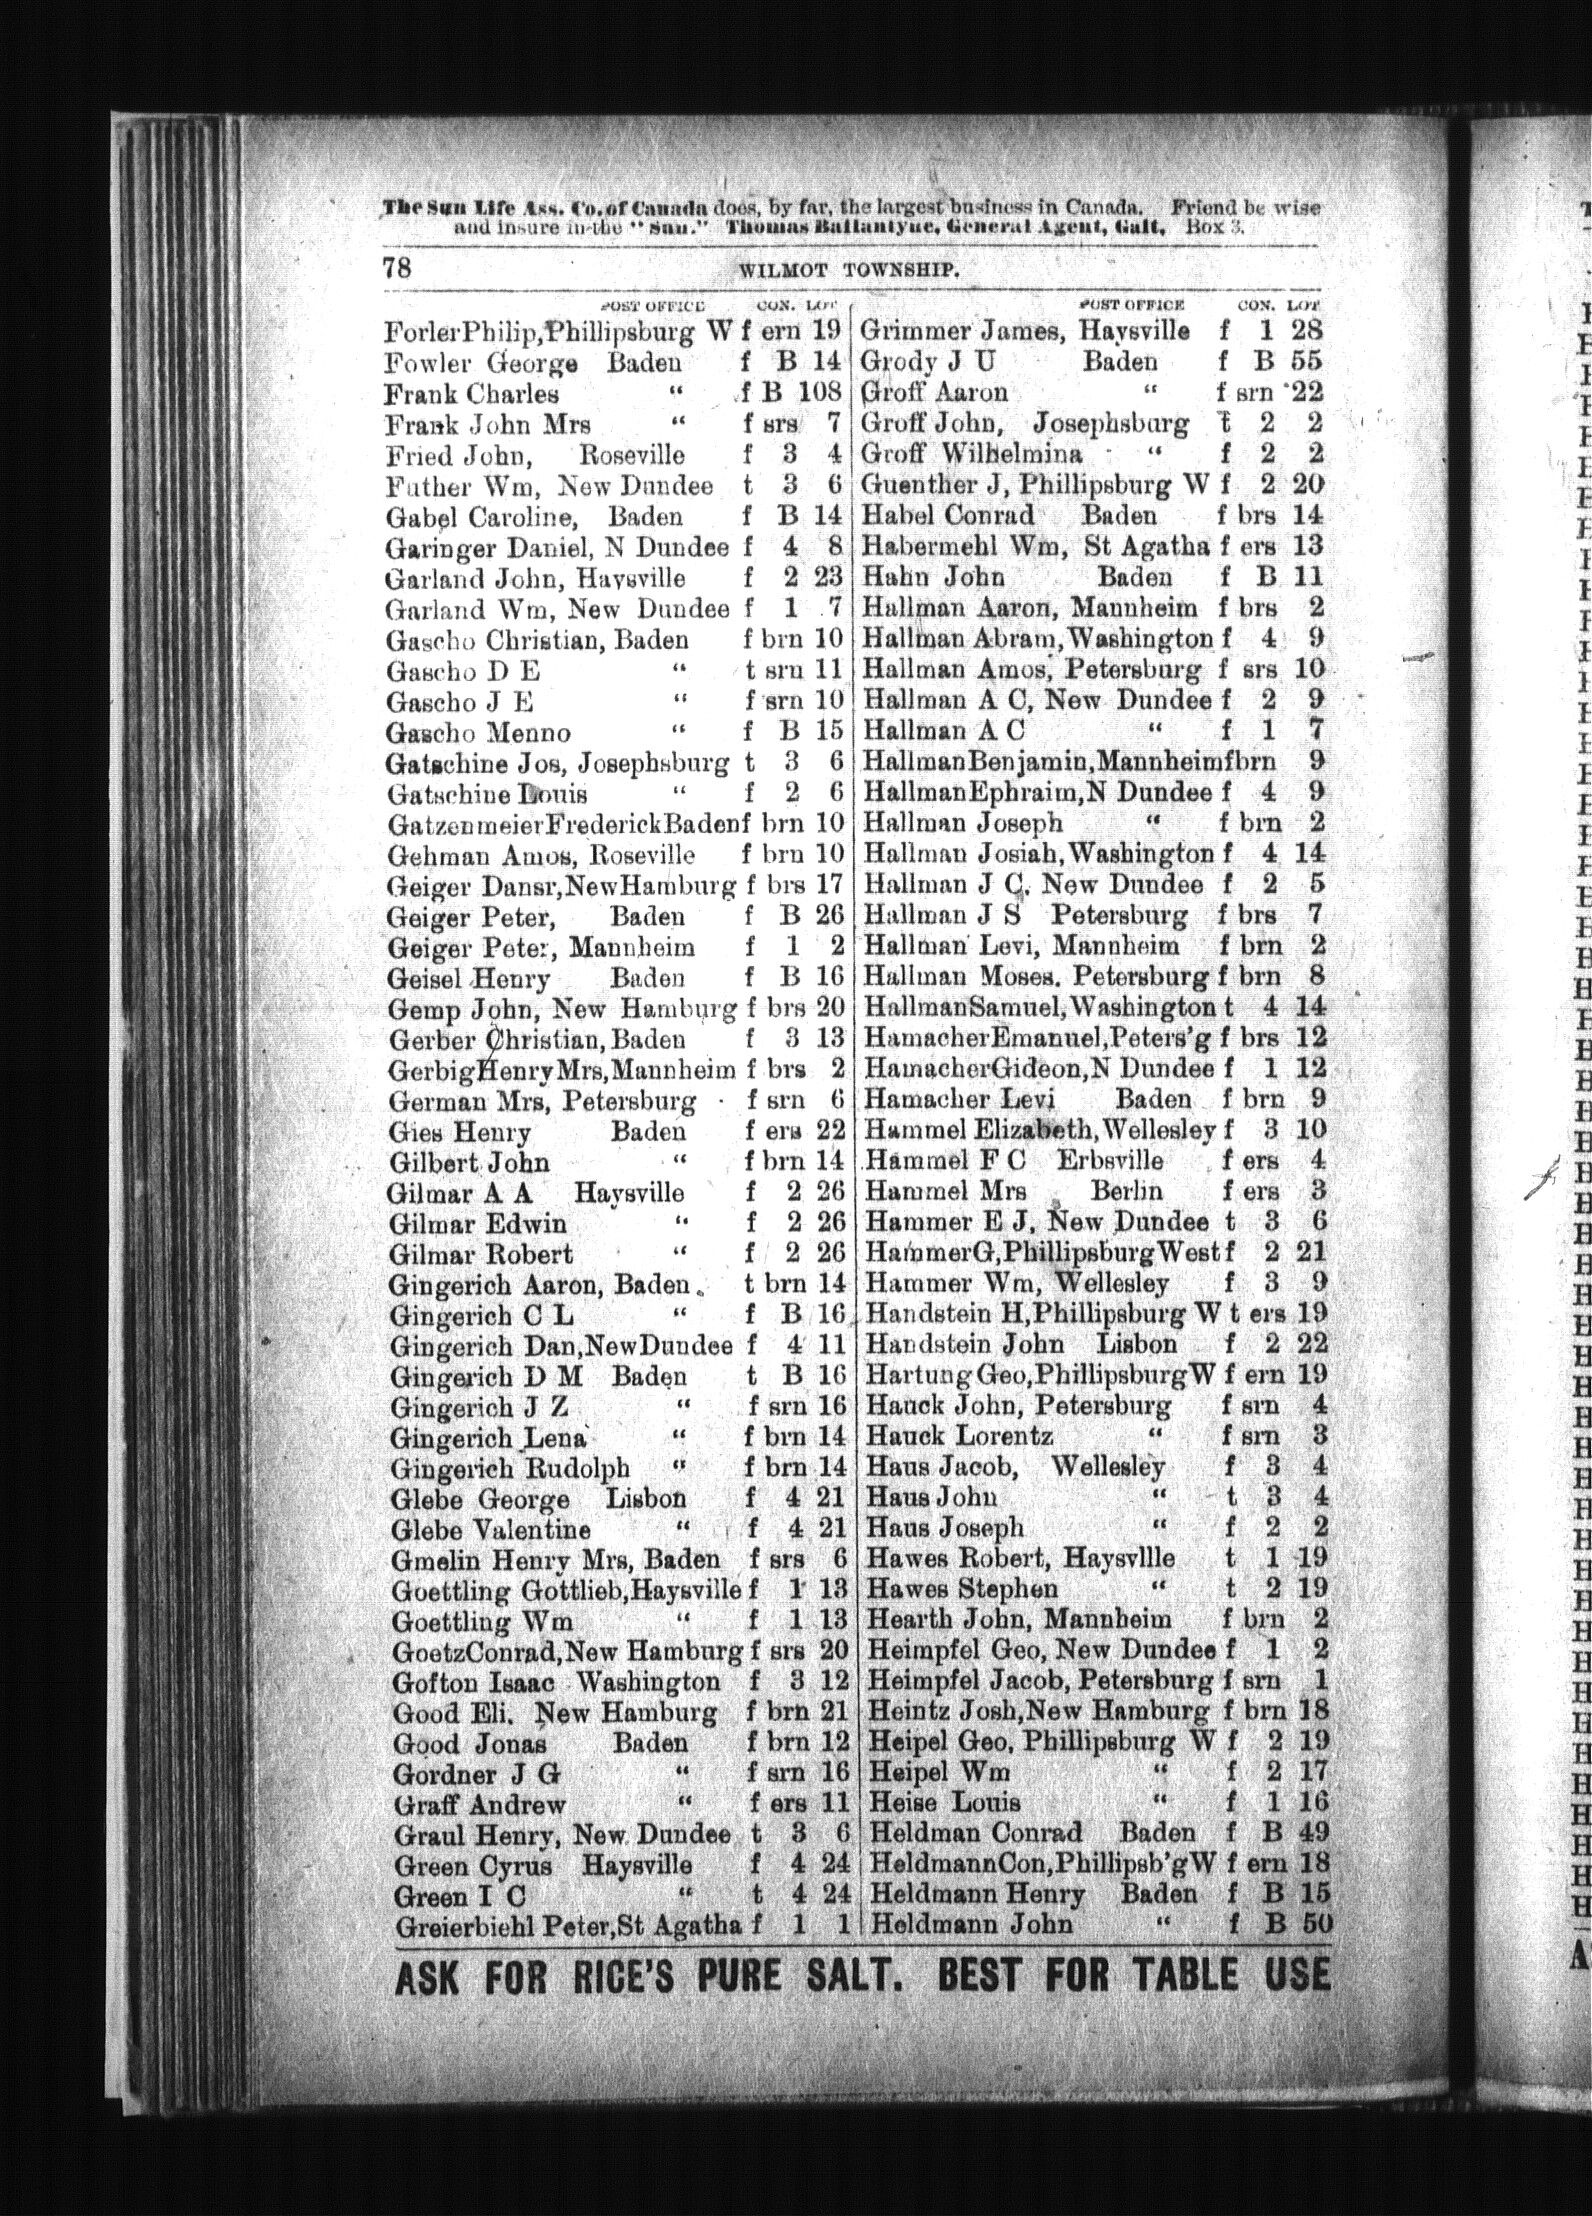 The Sun Life Ass. Co. of Canada does, by far, the largest business in Canada. Friend be wise
and insure in the "Sun." Thomas Ballantyne, General Agent, Galt, Box 3.
78 WILMOT TOWNSHIP.
POST OFFICE CON. LOT
Forler Philip, Phillipsburg W f ern 19
Fowler George Baden f B 14
Frank Charles " f B 108
Frank John Mrs " f srs 7
Fried John, Roseville f 3 4
Futher Wm, New Dundee t 3 6
Gabel Caroline, Baden f B 14
Garinger Daniel, N Dundee f 4 8
Garland John, Haysville f 2 23
Garland Wm, New Dundee f 1 7
Gascho Christian, Baden f brn 10
Gascho D E " t srn 11
Gascho J E " f srn 10
Gascho Menno " f B 15
Gatschine Jos, Josephsburg t 3 6
Gatschine Louis " f 2 6
Gatzenmeier Frederick Baden f brn 10
Gehman Amos, Roseville f brn 10
Geiger Dansr, New Hamburg f brs 17
Geiger Peter, Baden f B 26
Geiger Peter, Mannheim f 1 2
Geisel Henry Baden f B 16
Gemp John, New Hamburg f brs 20
Gerber Christian, Baden f 3 13
Gerbig Henry Mrs, Mannheim f brs 2
German Mrs, Petersburg f srn 6
Gies Henry Baden f ers 22
Gilbert John " f brn 14
Gilmar A A Haysville f 2 26
Gilmar Edwin " f 2 26
Gilmar Robert " f 2 26
Gingerich Aaron, Baden t brn 14
Gingerich C L " f B 16
Gingerich Dan, New Dundee f 4 11
Gingerich D M Baden t B 16
Gingerich J Z " f srn 16
Gingerich Lena " f brn 14
Gingerich Rudolph " f brn 14
Glebe George Lisbon f 4 21
Glebe Valentine " f 4 21
Gmelin Henry Mrs, Baden f srs 6
Goettling Gottlieb, Haysville f 1 13
Goettling Wm " f 1 13
Goetz Conrad, New Hamburg f srs 20
Gofton Isaac Washington f 3 12
Good Eli. New Hamburg f brn 21
Good Jonas Baden f brn 12
Gordner J G " f srn 16
Graff Andrew " f ers 11
Graul Henry, New Dundee t 3 6
Green Cyrus Haysville f 4 24
Green I C " t 4 24
Greierbiehl Peter, St Agatha f 1 1
POST OFFICE CON. LOT
Grimmer James, Haysville f 1 28
Grody J U Baden f B 55
Groff Aaron " f srn 22
Groff John, Josephsburg t 2 2
Groff Wilhelmina " f 2 2
Guenther J, Phillipsburg W f 2 20
Habel Conrad Baden f brs 14
Habermehl Wm, St Agatha f ers 13
Hahn John Baden f B 11
Hallman Aaron, Mannheim f brs 2
Hallman Abram, Washington f 4 9
Hallman Amos, Petersburg f srs 10
Hallman A C, New Dundee f 2 9
Hallman A C " f 1 7
Hallman Benjamin, Mannheim f brn 9
Hallman Ephraim, N Dundee f 4 9
Hallman Joseph " f brn 2
Hallman Josiah, Washington f 4 14
Hallman J C. New Dundee f 2 5
Hallman J S Petersburg f brs 7
Hallman Levi, Mannheim f brn 2
Hallman Moses. Petersburg f brn 8
Hallman Samuel, Washington t 4 14
Hamacher Emanuel, Peters'g f brs 12
Hamacher Gideon, N Dundee f 1 12
Hamacher Levi Baden f brn 9
Hammel Elizabeth, Wellesley f 3 10
Hammel F C Erbsville f ers 4
Hammel Mrs Berlin f ers 3
Hammer E J, New Dundee t 3 6
Hammer G, Phillipsburg West f 2 21
Hammer Wm, Wellesley f 3 9
Handstein H, Phillipsburg W t ers 19
Handstein John Lisbon f 2 22
Hartung Geo, Phillipsburg W f ern 19
Hauck John, Petersburg f srn 4
Hauck Lorentz " f srn 3
Haus Jacob, Wellesley f 3 4
Haus John " t 3 4
Haus Joseph " f 2 2
Hawes Robert, Haysvllle t 1 19
Hawes Stephen " t 2 19
Hearth John, Mannheim f brn 2
Heimpfel Geo, New Dundee f 1 2
Heimpfel Jacob, Petersburg f srn 1
Heintz Josh, New Hamburg f brn 18
Heipel Geo, Phillipsburg W f 2 19
Heipel Wm " f 2 17
Heise Louis " f 1 16
Heldman Conrad Baden f B 49
Heldmann Con, Phillipsb'g W f ern 18
Heldmann Henry Baden f B 15
Heldmann John " f B 50
ASK FOR RICE'S PURE SALT. BEST FOR TABLE USE